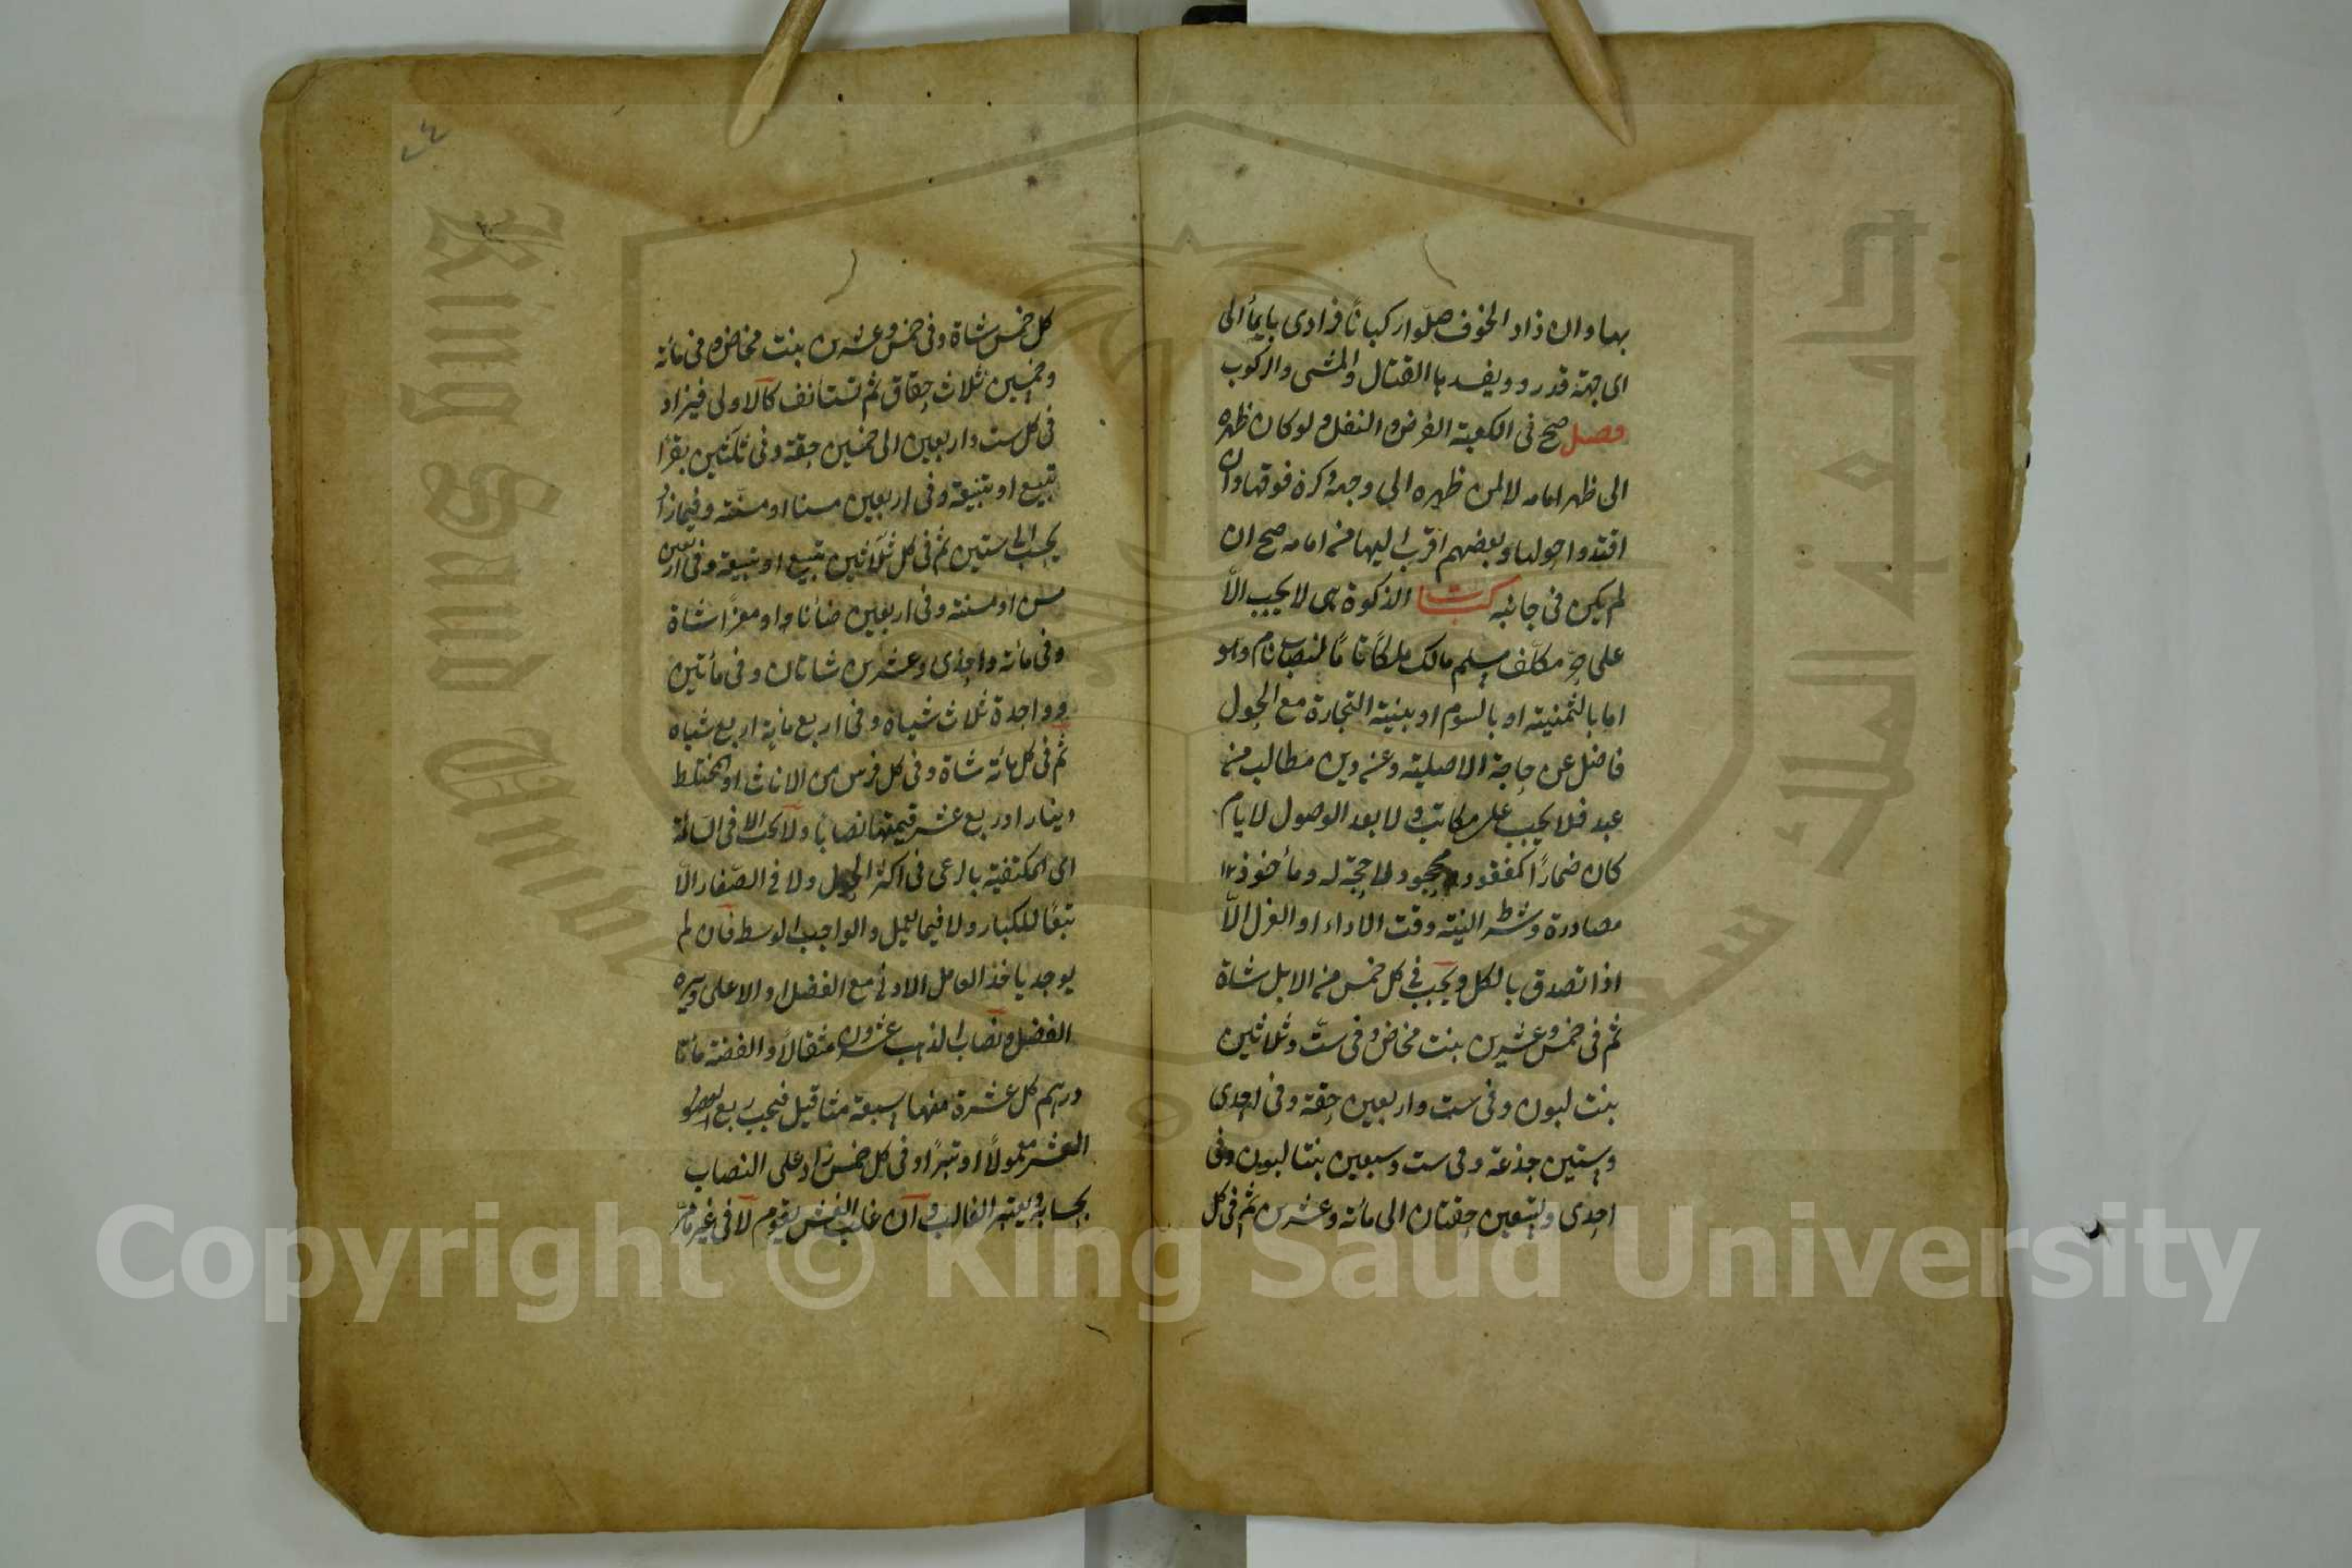 بها وان زاد الخوف صلوا ركبانًا فرادى بايمأ الى
اى جهة قدروو ويفسدها القتال والمشى والركوب
فصل صح فى الكعبة الفرض والنفل ولو كان ظهره
الى ظهر امامه لا لمن ظهره الى وجهه وكره فوقها وان
اقتدوا حولها وبعضهم اقرب اليها من امامه صح ان
لم يكن فى جانبه كتاب الزكوة هى لا يجب الّا
على حر مكلّف مسلم مالك ملكًا تامًا لنصاب نام وهو
اما بالثمنية او بالسوم او بنية التجارة مع الحول
فاضل عن حاجة الاصلية وعن دين مطالب من
عبد فلا يجب على مكاتب ولا بعد الوصول لايام
كان ضمارًا كمفقود ومجحود لا حجة له ومأخوذ
مصادرة وشرط النية وقت الاداء او العزل الّا
اذا تصدق بالكل ويجب فى كل خمس من الابل شاة
ثم فى خمس وعشرين بنت مخاض وفى ست وثلاثين
بنت لبون وفى ست واربعين حقة وفى احدى
وستين جذعة وفى ست وسبعين بنتا لبون وفى
احدى وتسعين حقتان الى مائة وعشرين ثم فى كل
كل خمس شاة وفى خمس وعشرين بنت مخاض وفى مائة
وخمسين ثلاث حقاق ثم تستانف كالاولى فيزاد
فى كل ست واربعين الى خمسين حقة وفى ثلثين بقرًا
تبيع او تبيعة وفى اربعين مسنا او مسنة وفيما زاد
يجب الى ستين ثم فى كل ثلاثين تبيع او تبيعة وفى اربعين
مسن او مسنة وفى اربعين ضأنا او معزًا شاة
وفى مائة واحدى وعشرين شاتان وفى مأتين
وواحدة ثلاث شياه وفى اربع مائة اربع شياه
ثم فى كل مائة شاة وفى كل فرس من الاناث او المختلط
دينار او ربع عشر قيمتها نصابا ولا يجب الا فى السائمة
اى المكتفية بالرعى فى اكثر الحول ولا فى الصغار الّا
تبعًا للكبار ولا فيما يعمل والواجب الوسط فان لم
يوجد ياخذ العامل الادنى مع الفضل او الاعلى ويرد
الفضل ونصاب الذهب عشرون مثقالًا والفضة مأتا
درهم كل عشرة منها سبعة مثاقيل فيجب ربع
العشر معمولًا او تبرًا وفى كل خمس زاد على النصاب
بحسابه ويعتبر الغالب وان غلب الغش يقوم لا فى غير مامر